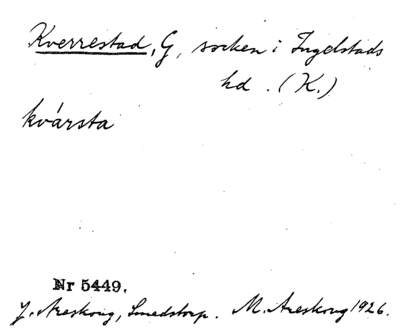 Kverrestad, G, socken i Ingelstads
hd. (K.)
kvársta
Nr 5449.
J. Areskoug, Smedstorp. M. Areskoug 1926.